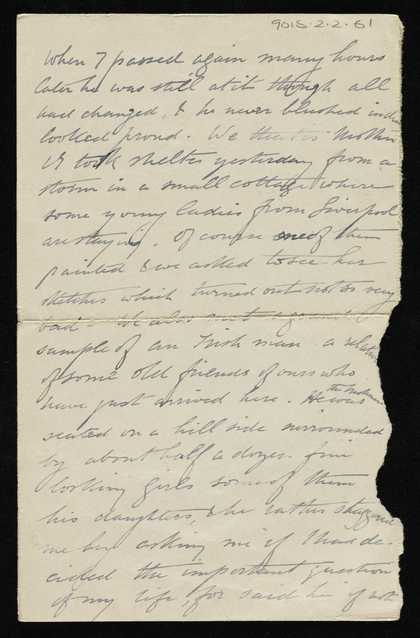 9015-2-2-61
When I passed again many hours
later he was still at it though all
had changed, & he never blushed
looked proud. We that is Mother
& I took shelter yesterday from a
storm in a small cottage where
some young ladies from Liverpool
are staying. Of course one of them
painted & we asked to see her
sketches which turned out not so very
bad. We also
sample of an Irish man a
of some old friends of ours who
have just arrived here. He was
seated on a hill side surrounded
by about half a dozen fine
looking girls some of them
his daughters, & he rather
me by asking me if I had de-
cided the important question
of my life, for said he if not